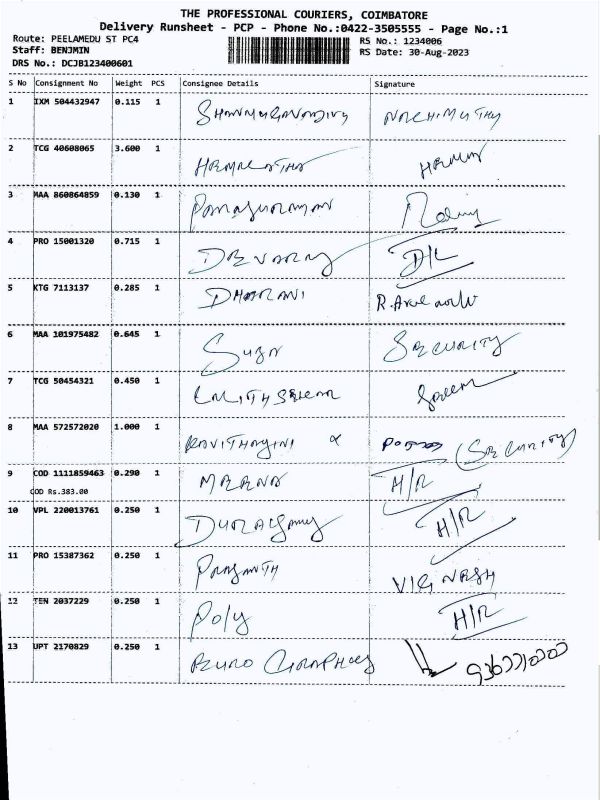 THE PROFESSIONAL COURIERS, COIMBATORE
Delivery Runsheet - PCP - Phone No.:0422-3505555 - Page No.:1
Route: PEELAMEDU ST PC4 RS No.: 1234006
Staff: BENJMIN RS Date: 30-Aug-2023
DRS No.: DCJB123400601
S No Consignment No Weight PCS Consignee Details Signature
1 IXM 504432947 0.115 1 NACHIMUTHY
2 TCG 40608065 3.600 1 HEMALATHA
3 MAA 860864859 0.130 1
4 PRO 15001320 0.715 1 DEVARAJ D/L
5 KTG 7113137 0.285 1 DHARANI
6 MAA 101975482 0.645 1 SECURITY
7 TCG 50454321 0.450 1 LALITH SELLAM
8 MAA 572572020 1.000 1 (SECURITY)
9 COD 1111859463 0.290 1 MEENA H/R
COD Rs.383.00
10 VPL 220013761 0.250 1 H/R
11 PRO 15387362 0.250 1 PRASANTH VIGNASH
12 TEN 2037229 0.250 1 Poly H/R
13 UPT 2170829 0.250 1 EURO GRAPHICS